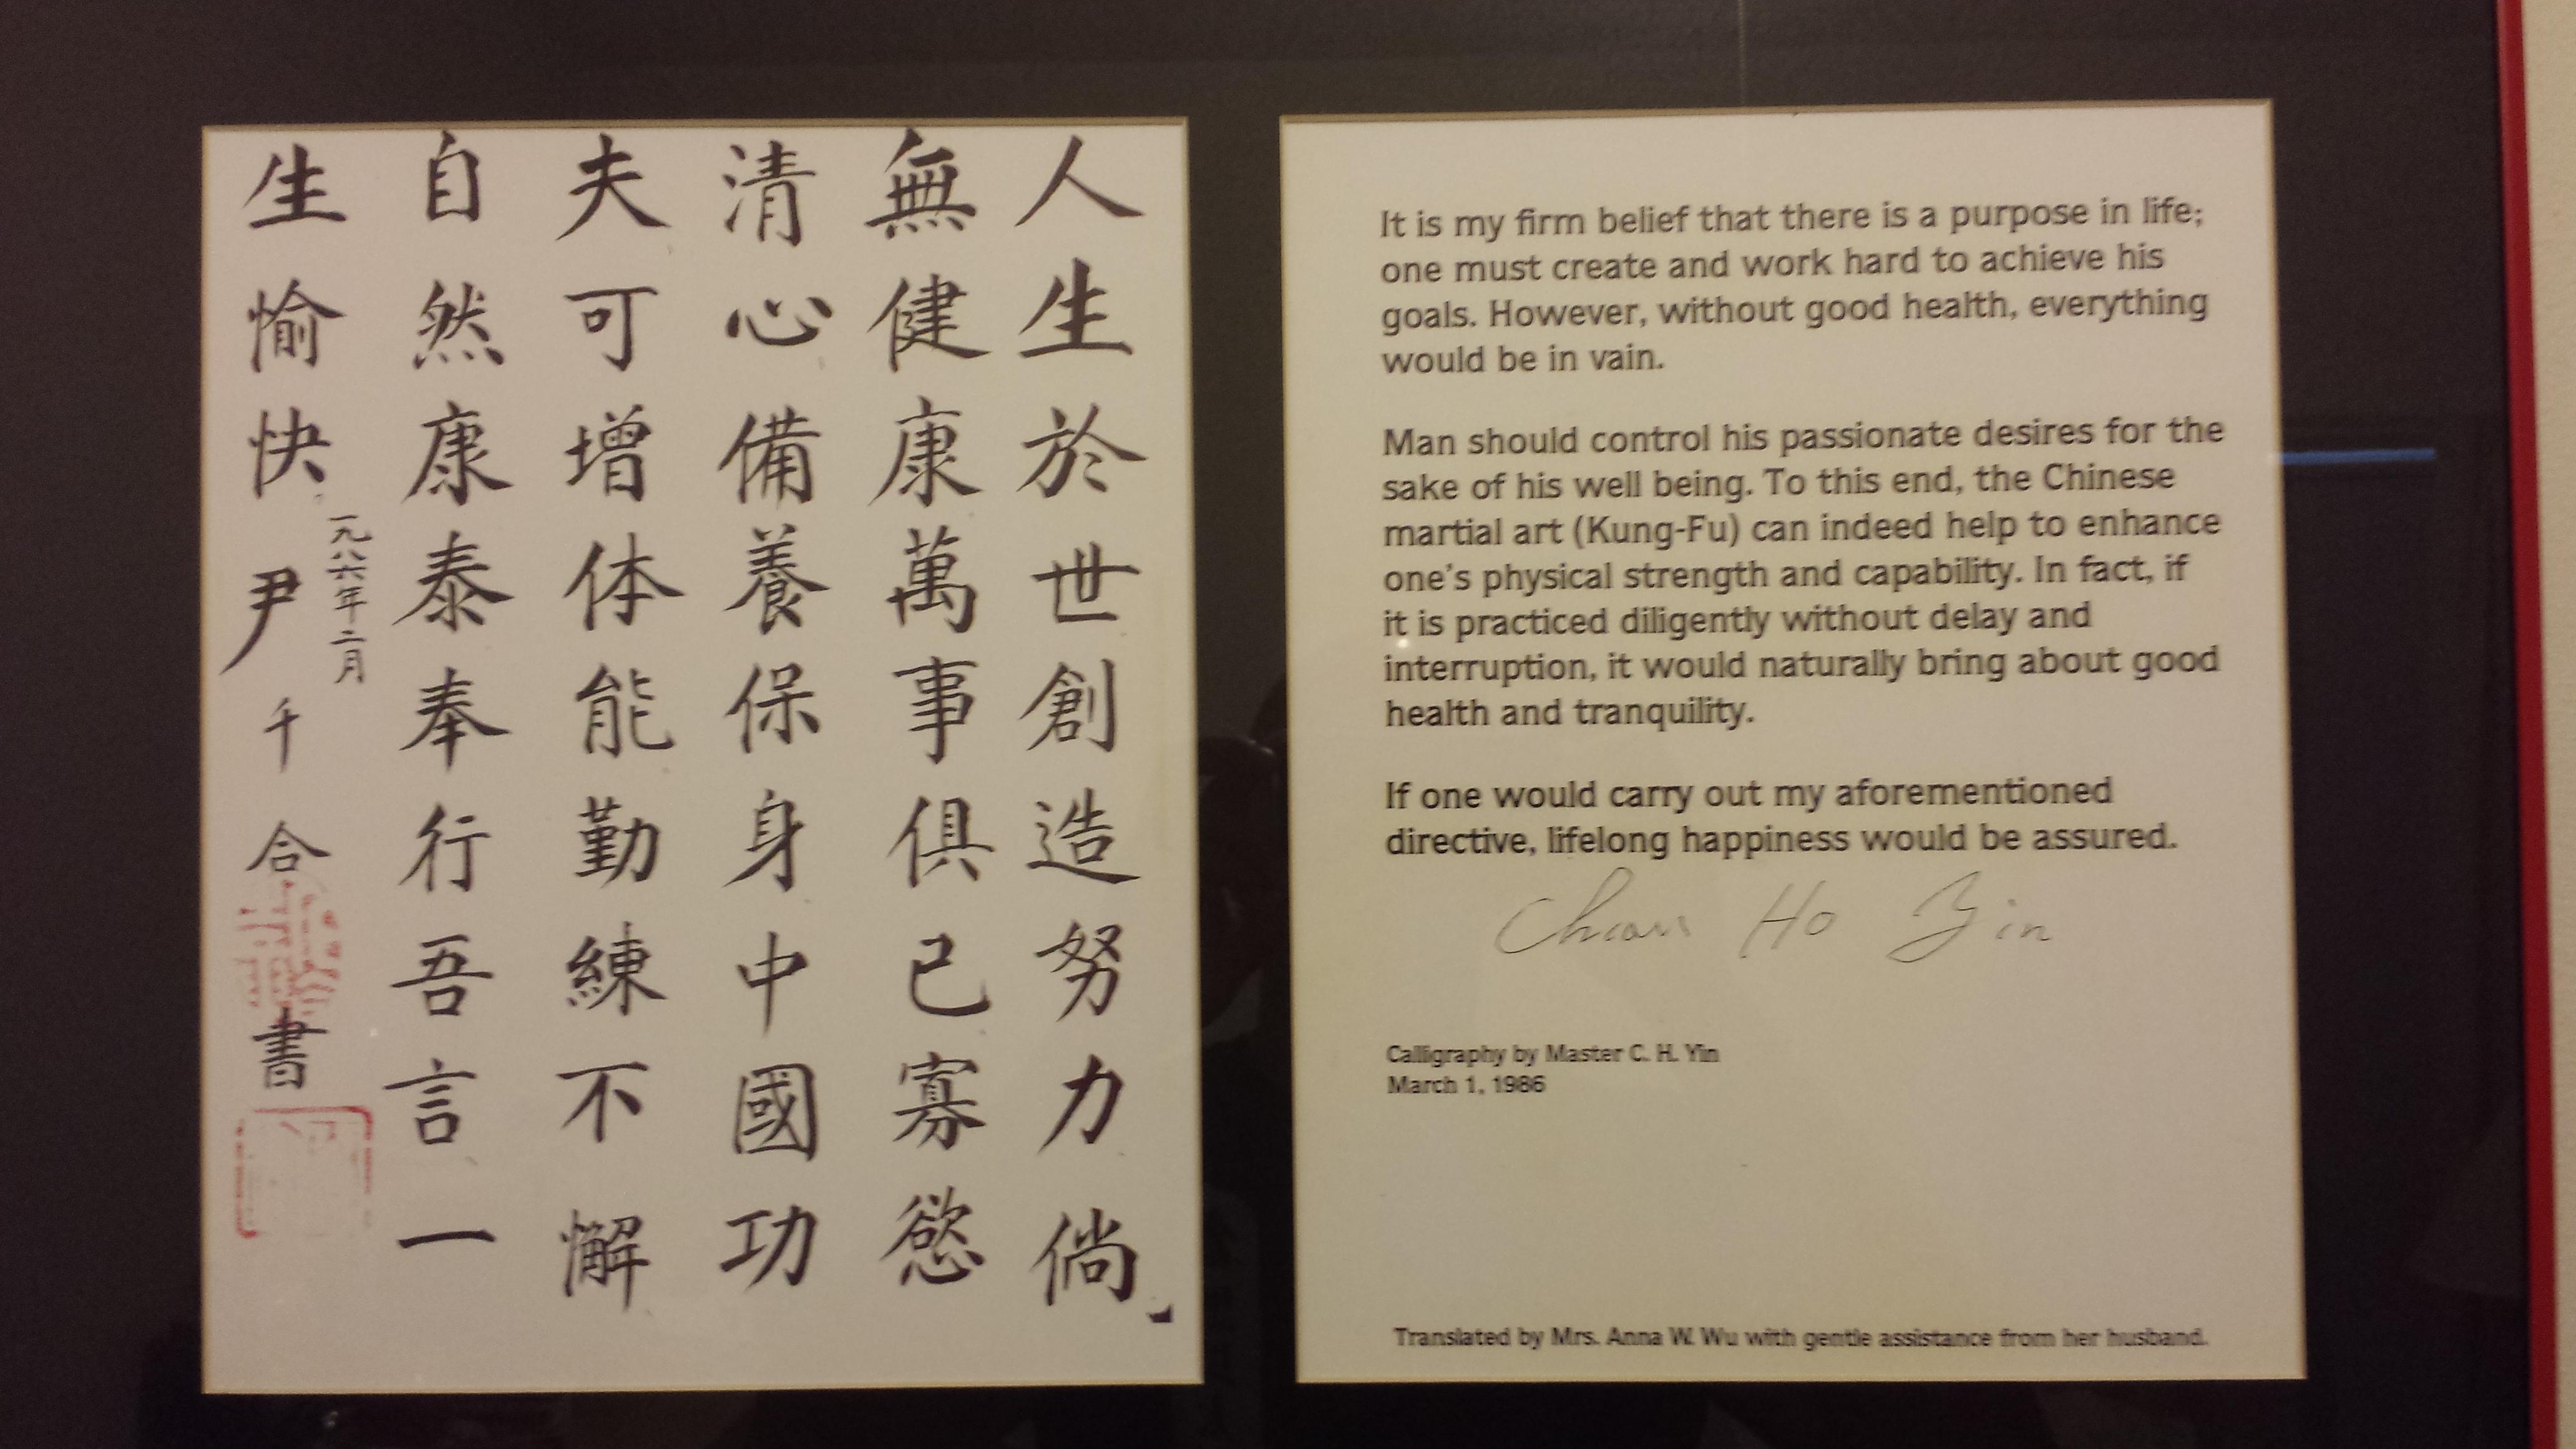 人生於世創造努力倘
無健康萬事俱已寡慾
清心備養保身中國功
夫可增体能勤練不懈
自然康泰奉行吾言一
生愉快
一九八六年二月
尹千合書
It is my firm belief that there is a purpose in life;
one must create and work hard to achieve his
goals. However, without good health, everything
would be in vain.
Man should control his passionate desires for the
sake of his well being. To this end, the Chinese
martial art (Kung-Fu) can indeed help to enhance
one's physical strength and capability. In fact, if
it is practiced diligently without delay and
interruption, it would naturally bring about good
health and tranquility.
If one would carry out my aforementioned
directive, lifelong happiness would be assured.
Chian Ho Yin
Calligraphy by Master C. H. Yin
March 1, 1986
Translated by Mrs. Anna W. Wu with gentle assistance from her husband.